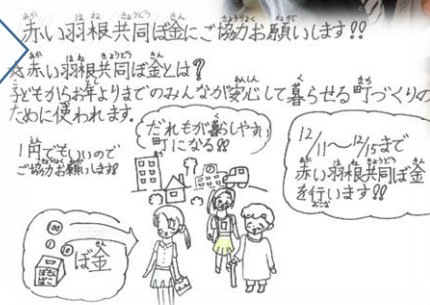 赤い羽根共同ぼ金にご協力お願いします!!
☆赤い羽根共同ぼ金とは?
子どもからお年よりまでのみんなが安心して暮らせる町づくりの
ために使われます.
1円でもいいので
ご協力お願いします!!
だれもが暮らしやすい
町になる!!
12/11〜12/15まで
赤い羽根共同ぼ金
を行います!!
ぼ金